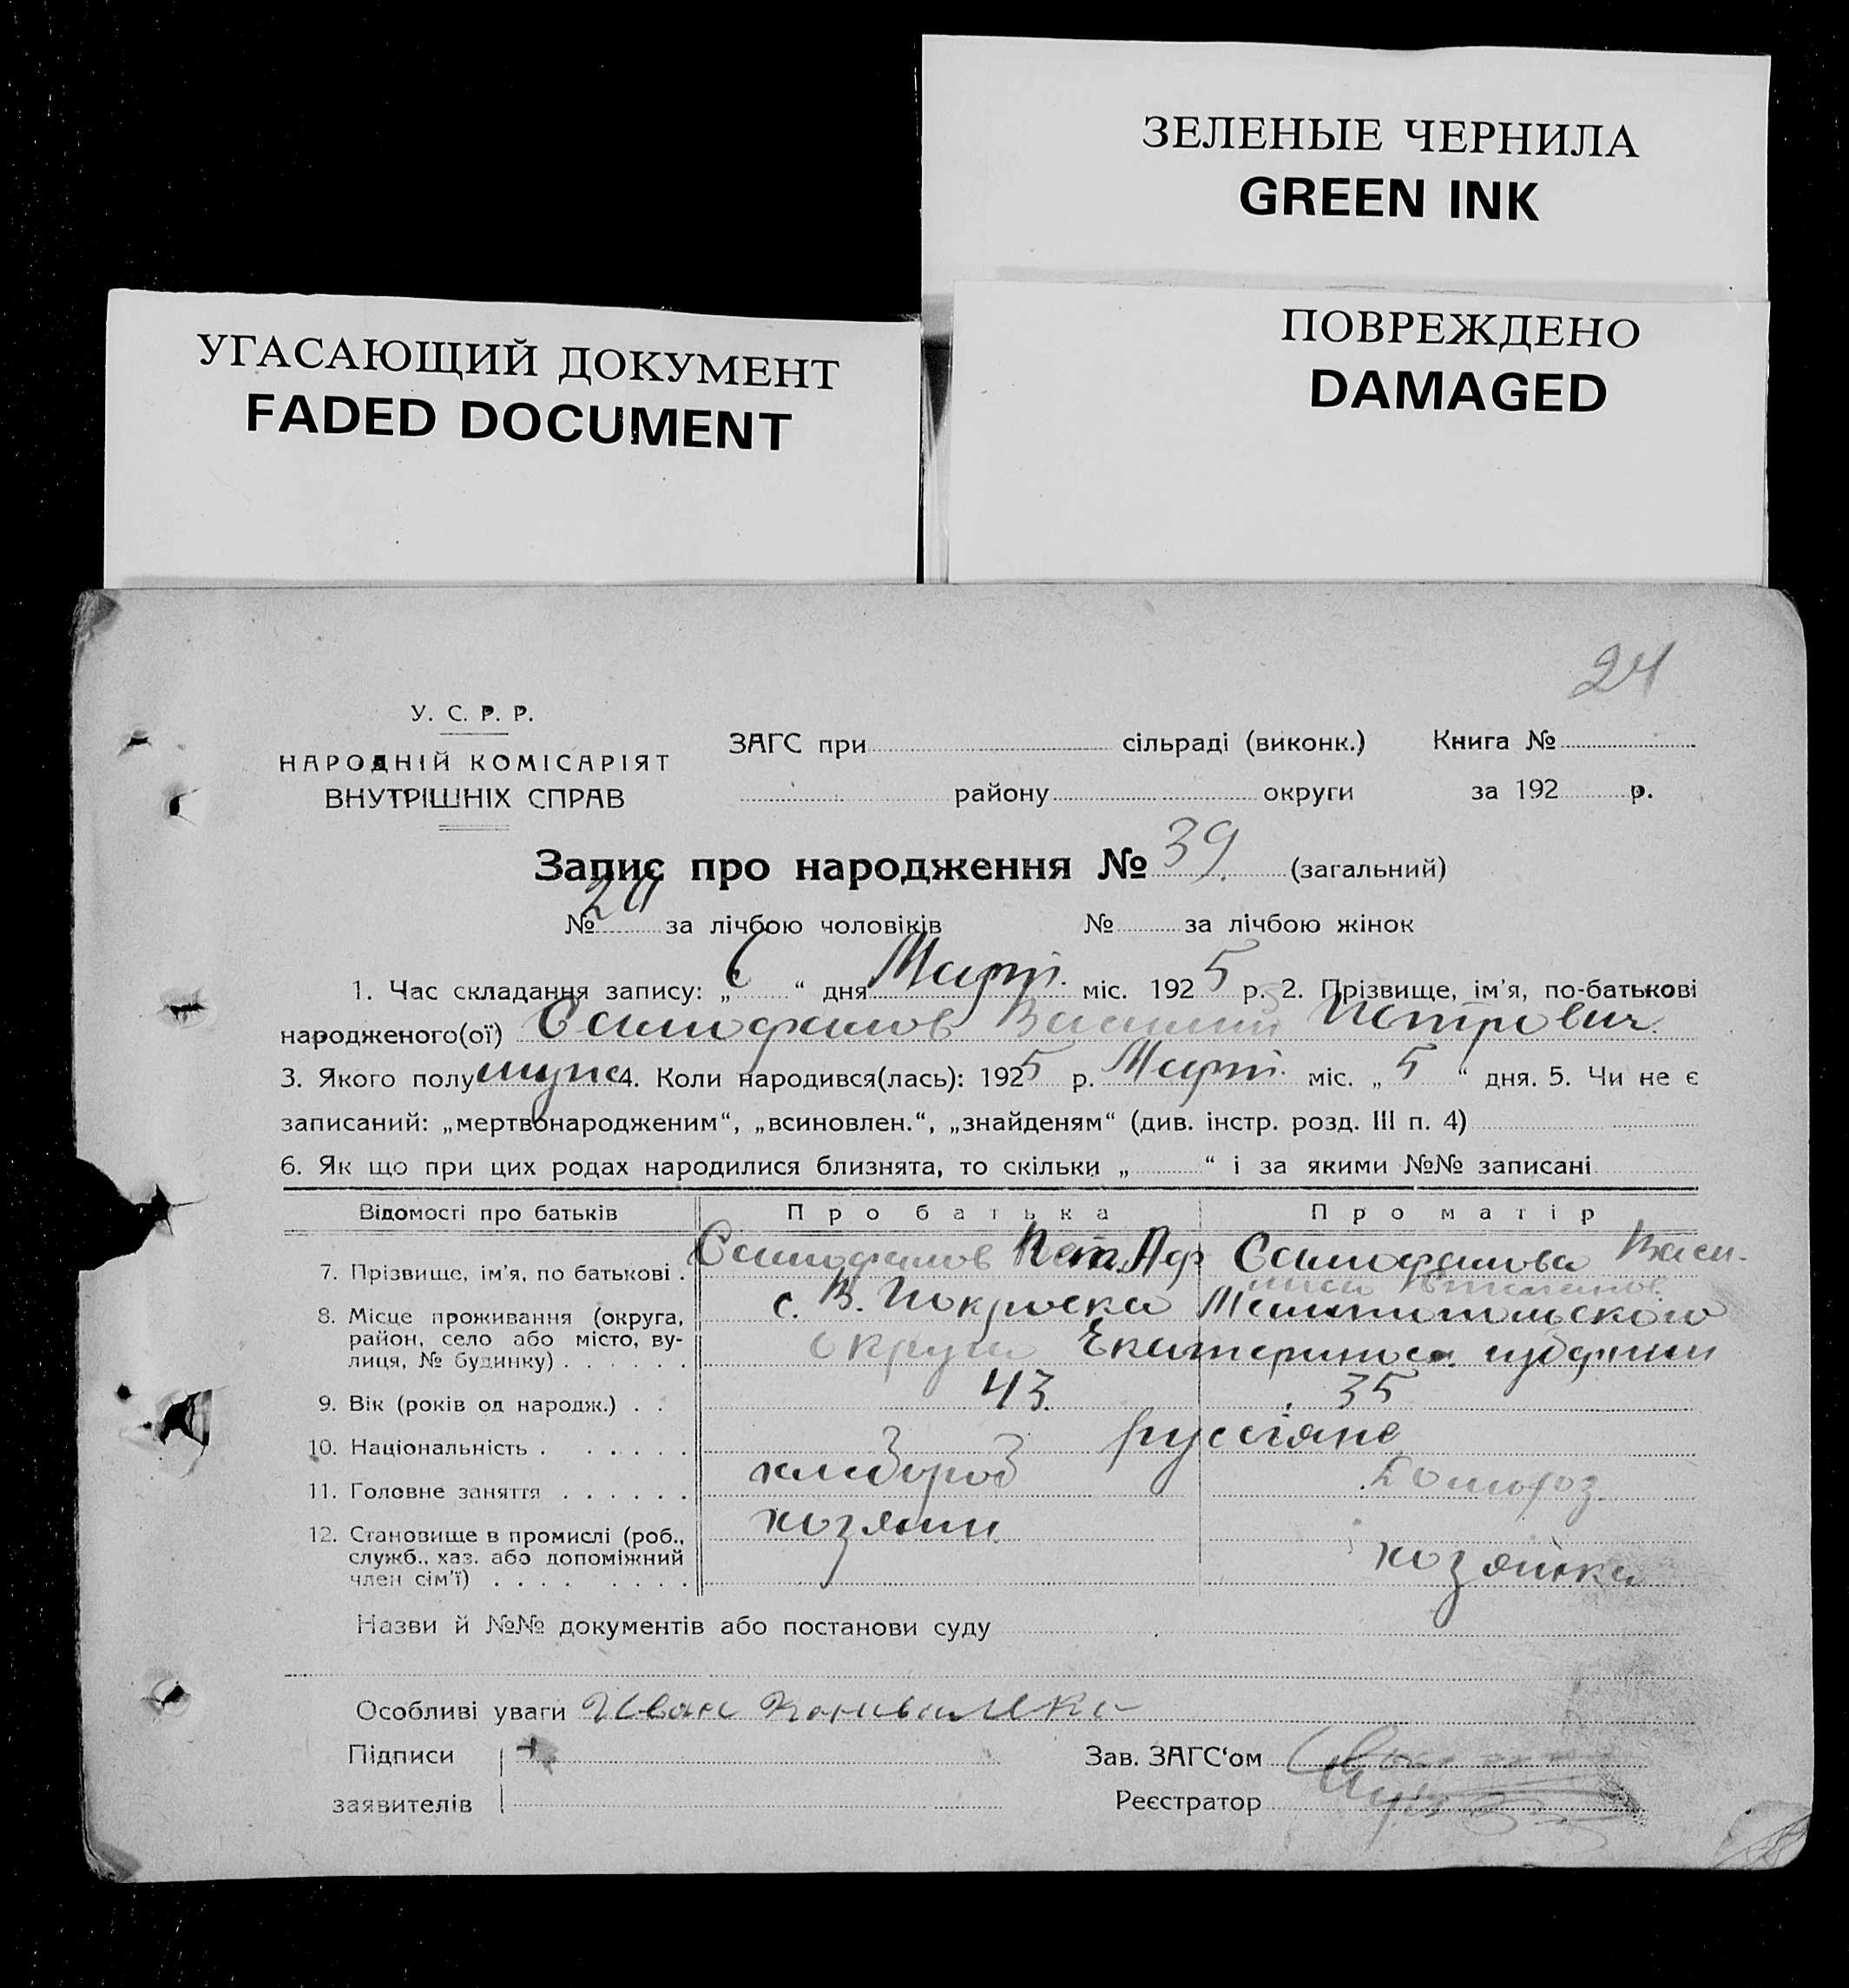 ЗЕЛЕНЫЕ ЧЕРНИЛА
GREEN INK
УГАСАЮЩИЙ ДОКУМЕНТ
FADED DOCUMENT
ПОВРЕЖДЕНО
DAMAGED
24
У. С. Р. Р.
НАРОДНІЙ КОМІСАРІЯТ
ВНУТРІШНІХ СПРАВ
ЗАГС при сільраді (виконк.) Книга №
району округи за 192 р.
Запис про народження № 39. (загальний)
№ 24 за лічбою чоловіків № за лічбою жінок
1. Час складання запису: „6“ дня Март. міс. 1925 р. 2. Прізвище, ім'я, по-батькові
народженого(ої) Самофалов Василий Петрович.
3. Якого полу мужс 4. Коли народився(лась): 1925 р. Март. міс. „5“ дня. 5. Чи не є
записаний: „мертвонародженим“, „всиновлен.“, „знайденям“ (див. інстр. розд. III п. 4)
6. Як що при цих родах народилися близнята, то скільки „ “ і за якими №№ записані
Відомості про батьків Про батька Про матір
7. Прізвище, ім'я, по батькові . Самофалов Пет. Аф Самофалова Васи-
лиса Степанов.
8. Місце проживання (округа, район, село або місто, ву-лиця, № будинку) . . . . . . с. В. Покровка Мелитопольского
округа Екатеринос. губернии
9. Вік (років од народж.) . . 43. 35
10. Національність . . . . . . руссіяне
11. Головне заняття . . . . . . хлебороб Домохоз.
12. Становище в промислі (роб., служб., хаз. або допоміжний член сім'ї) . . . . . . . . хозяин хозяйка
Назви й №№ документів або постанови суду
Особливі уваги Иван
Підписи + Зав. ЗАГС'ом
заявителів Реєстратор